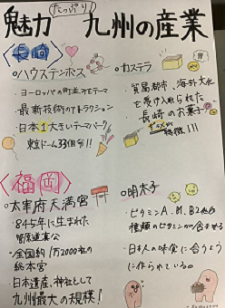 たっぷり!
魅力 九州の産業
長崎
○ハウステンボス
・ヨーロッパの町並がモチーフ
・最新技術のアトラクション
・日本1大きいテーマパーク
東京ドーム33個分!!
○カステラ
貿易都市、海外文化
を受け入れられた
長崎のお菓子
特徴!!!
福岡
○太宰府天満宮
・845年に生まれた
菅原道真公
・全国約1万2000社の
総本宮
・日本遺産、神社として
九州最大の規模!
○明太子
・ビタミンA、B1、B2、E
種類のビタミンが含まれる
・日本人の味覚に合うように
作られている